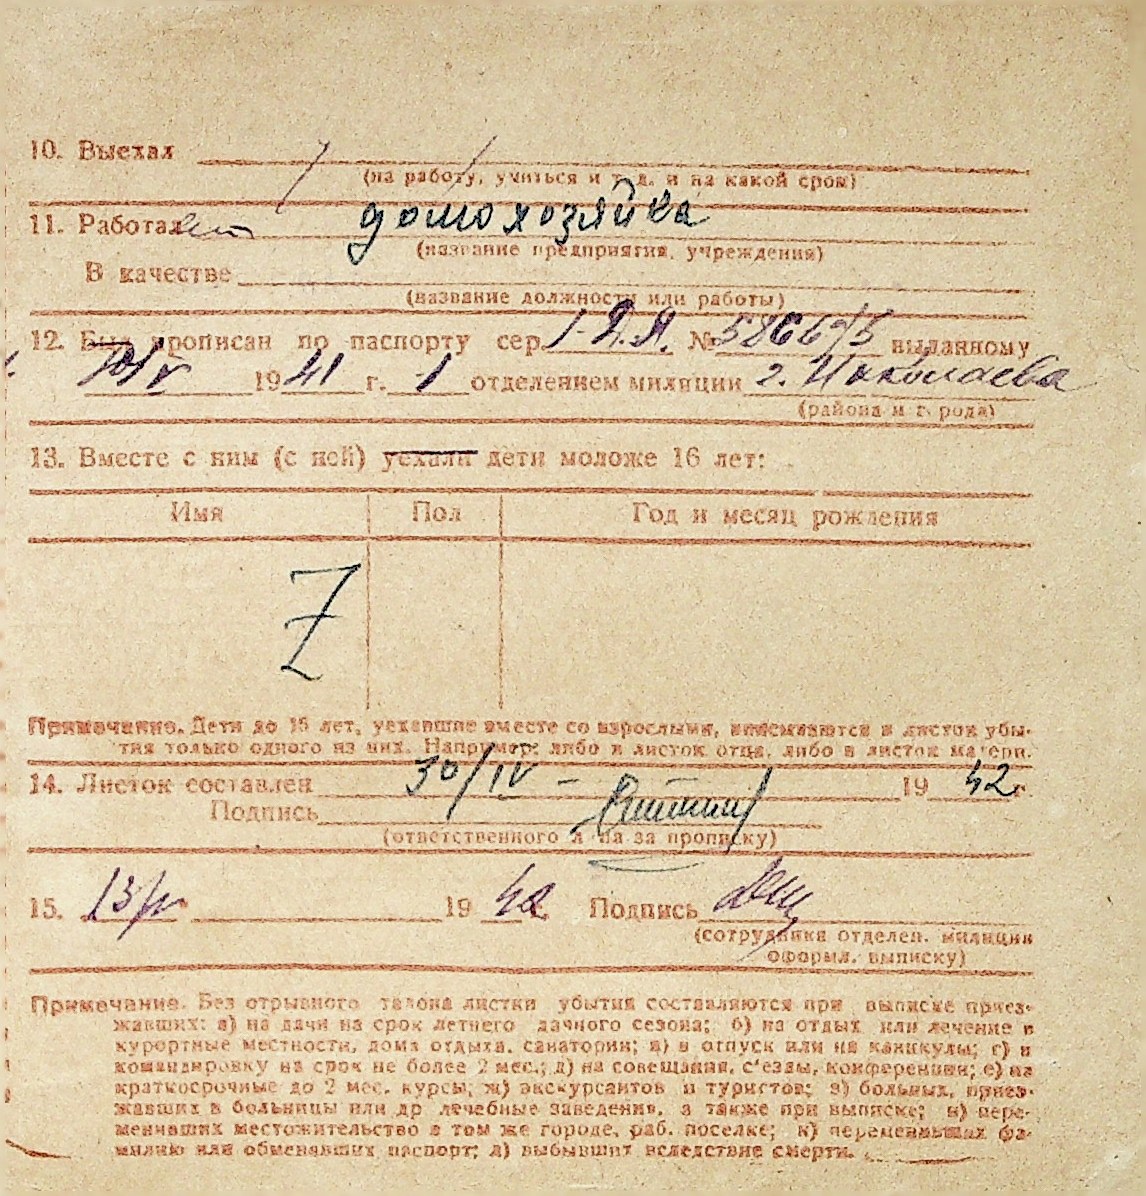 10. Выехал
(на работу, учиться и т. д. и на какой срок)
11. Работал домохозяйка
(название предприятия, учреждения)
В качестве
(название должности или работы)
12. Был прописан по паспорту сер. I-Я.Я. № 586675 выданному
1941 г. 1 отделением милиции г. Николаева
(района и города)
13. Вместе с ним (с ней) уехали дети моложе 16 лет:
Имя Пол Год и месяц рождения
Z
Примечание. Дети до 16 лет, уехавшие вместе со взрослыми, вписываются в листок убы-
тия только одного из них. Например: либо в листок отца, либо в листок матери.
14. Листок составлен 30/IV - 1942 г.
Подпись
(ответственного л на за прописку)
15. 13/IV 1942 Подпись
(сотрудника отделен. милиции
оформл. выписку)
Примечание. Без отрывного талона листки убытия составляются при выписке приез-
жавших: а) на дачи на срок летнего дачного сезона; б) на отдых или лечение в
курортные местности, дома отдыха, санатории; в) в отпуск или на каникулы; г) в
командировку на срок не более 2 мес.; д) на совещания, с'езды, конференции; е) на
краткосрочные до 2 мес. курсы; ж) экскурсантов и туристов; з) больных, приез-
жавших в больницы или др лечебные заведения, а также при выписке; и) пере-
менивших местожительство в том же городе, раб. поселке; к) переменивших фа-
милию или обменявших паспорт; л) выбывших вследствие смерти.